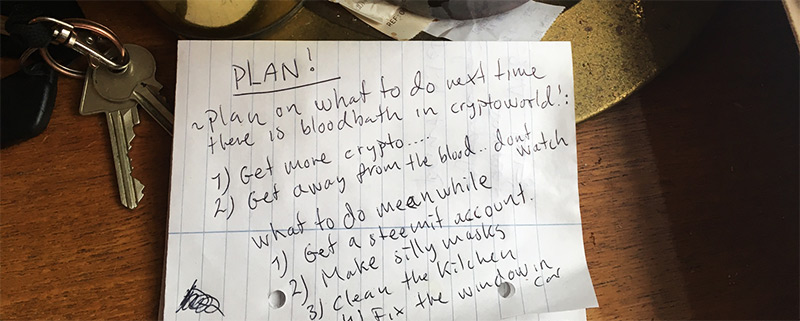 REF:
PLAN!
~ Plan on what to do next time
there is bloodbath in cryptoworld!:
1) Get more crypto....
2) Get away from the blood.. dont
watch
what to do meanwhile
1) Get a steemit account.
2) Make silly masks
3) Clean the kitchen
4) Fix the window in
car